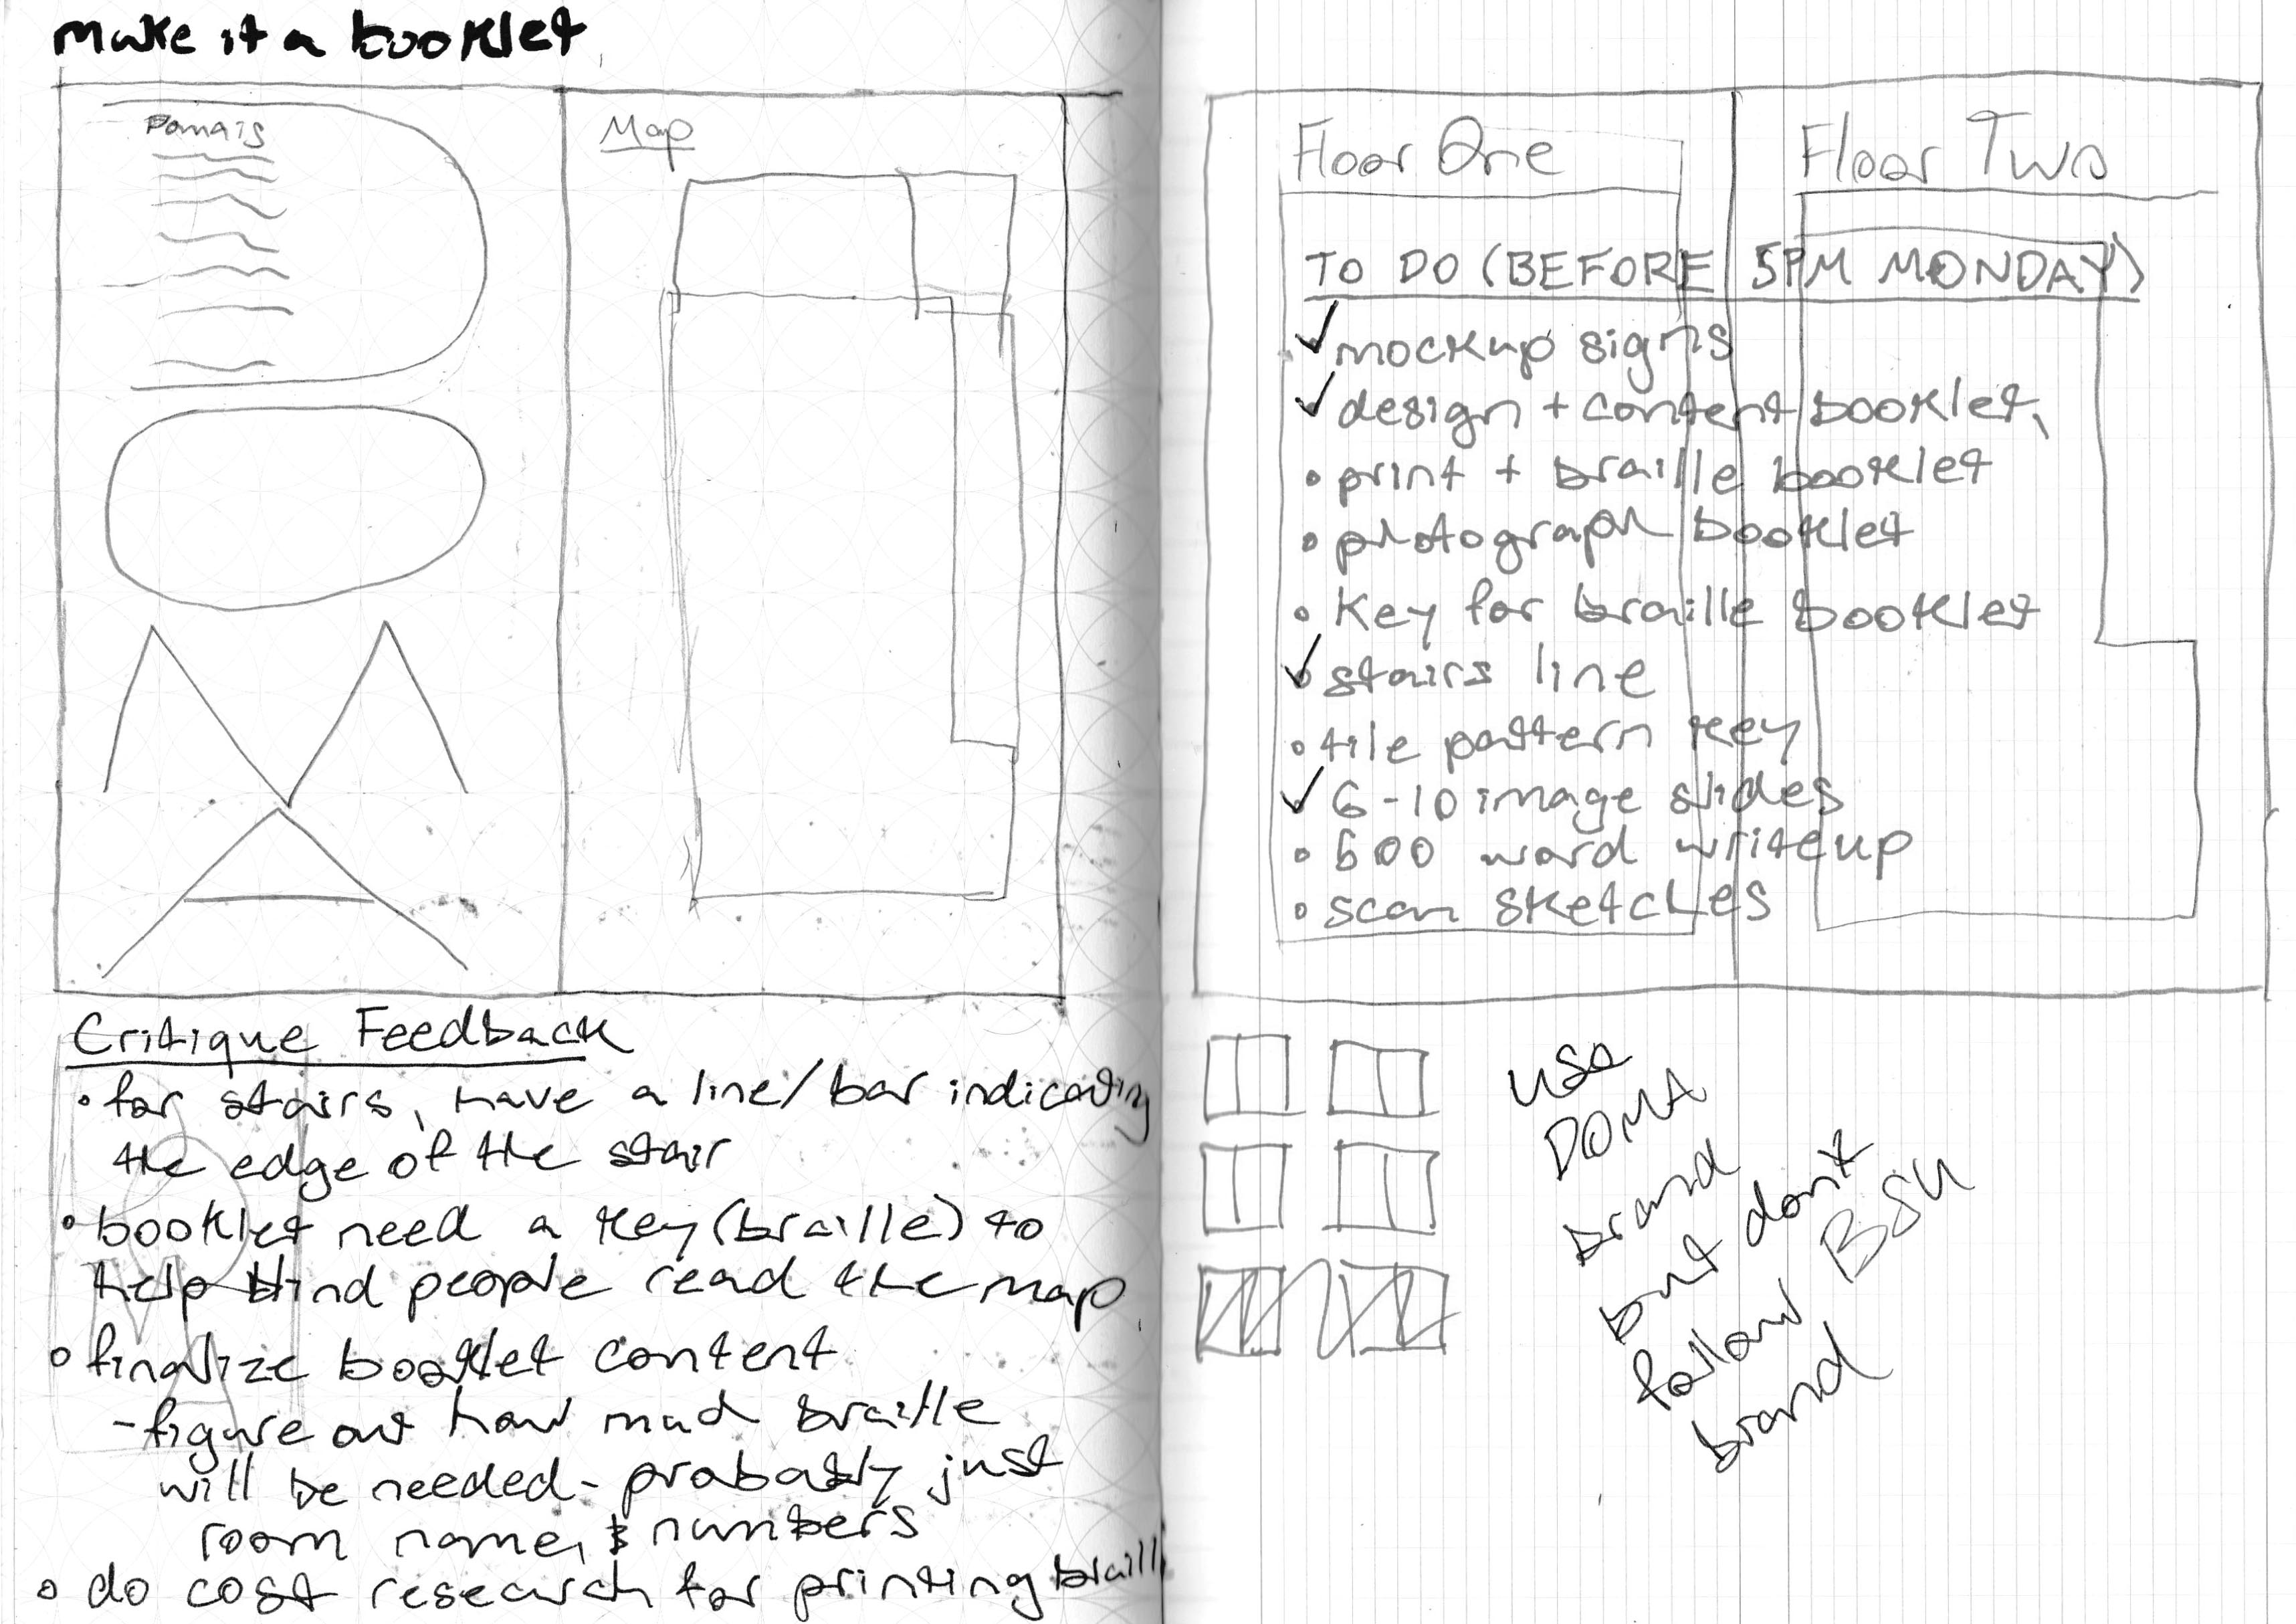 make it a booklet
Map
Critique Feedback
• for stairs, have a line/bar indicating
the edge of the stair
• booklet need a key (braille) to
help blind people read the map
• finalize booklet content
- figure out how much braille
will be needed - probably just
room name, & numbers
• do cost research for printing braille
Floor One
Floor Two
TO DO (BEFORE 5PM MONDAY)
✓ mockup signs
✓ design + content booklet,
• print + braille booklet
• photograph booklet
• key for braille booklet
✓ stairs line
• tile pattern key
✓ 6-10 image slides
• 600 word writeup
• scan sketches
use
DOMA
brand
but don't
follow BSU
brand